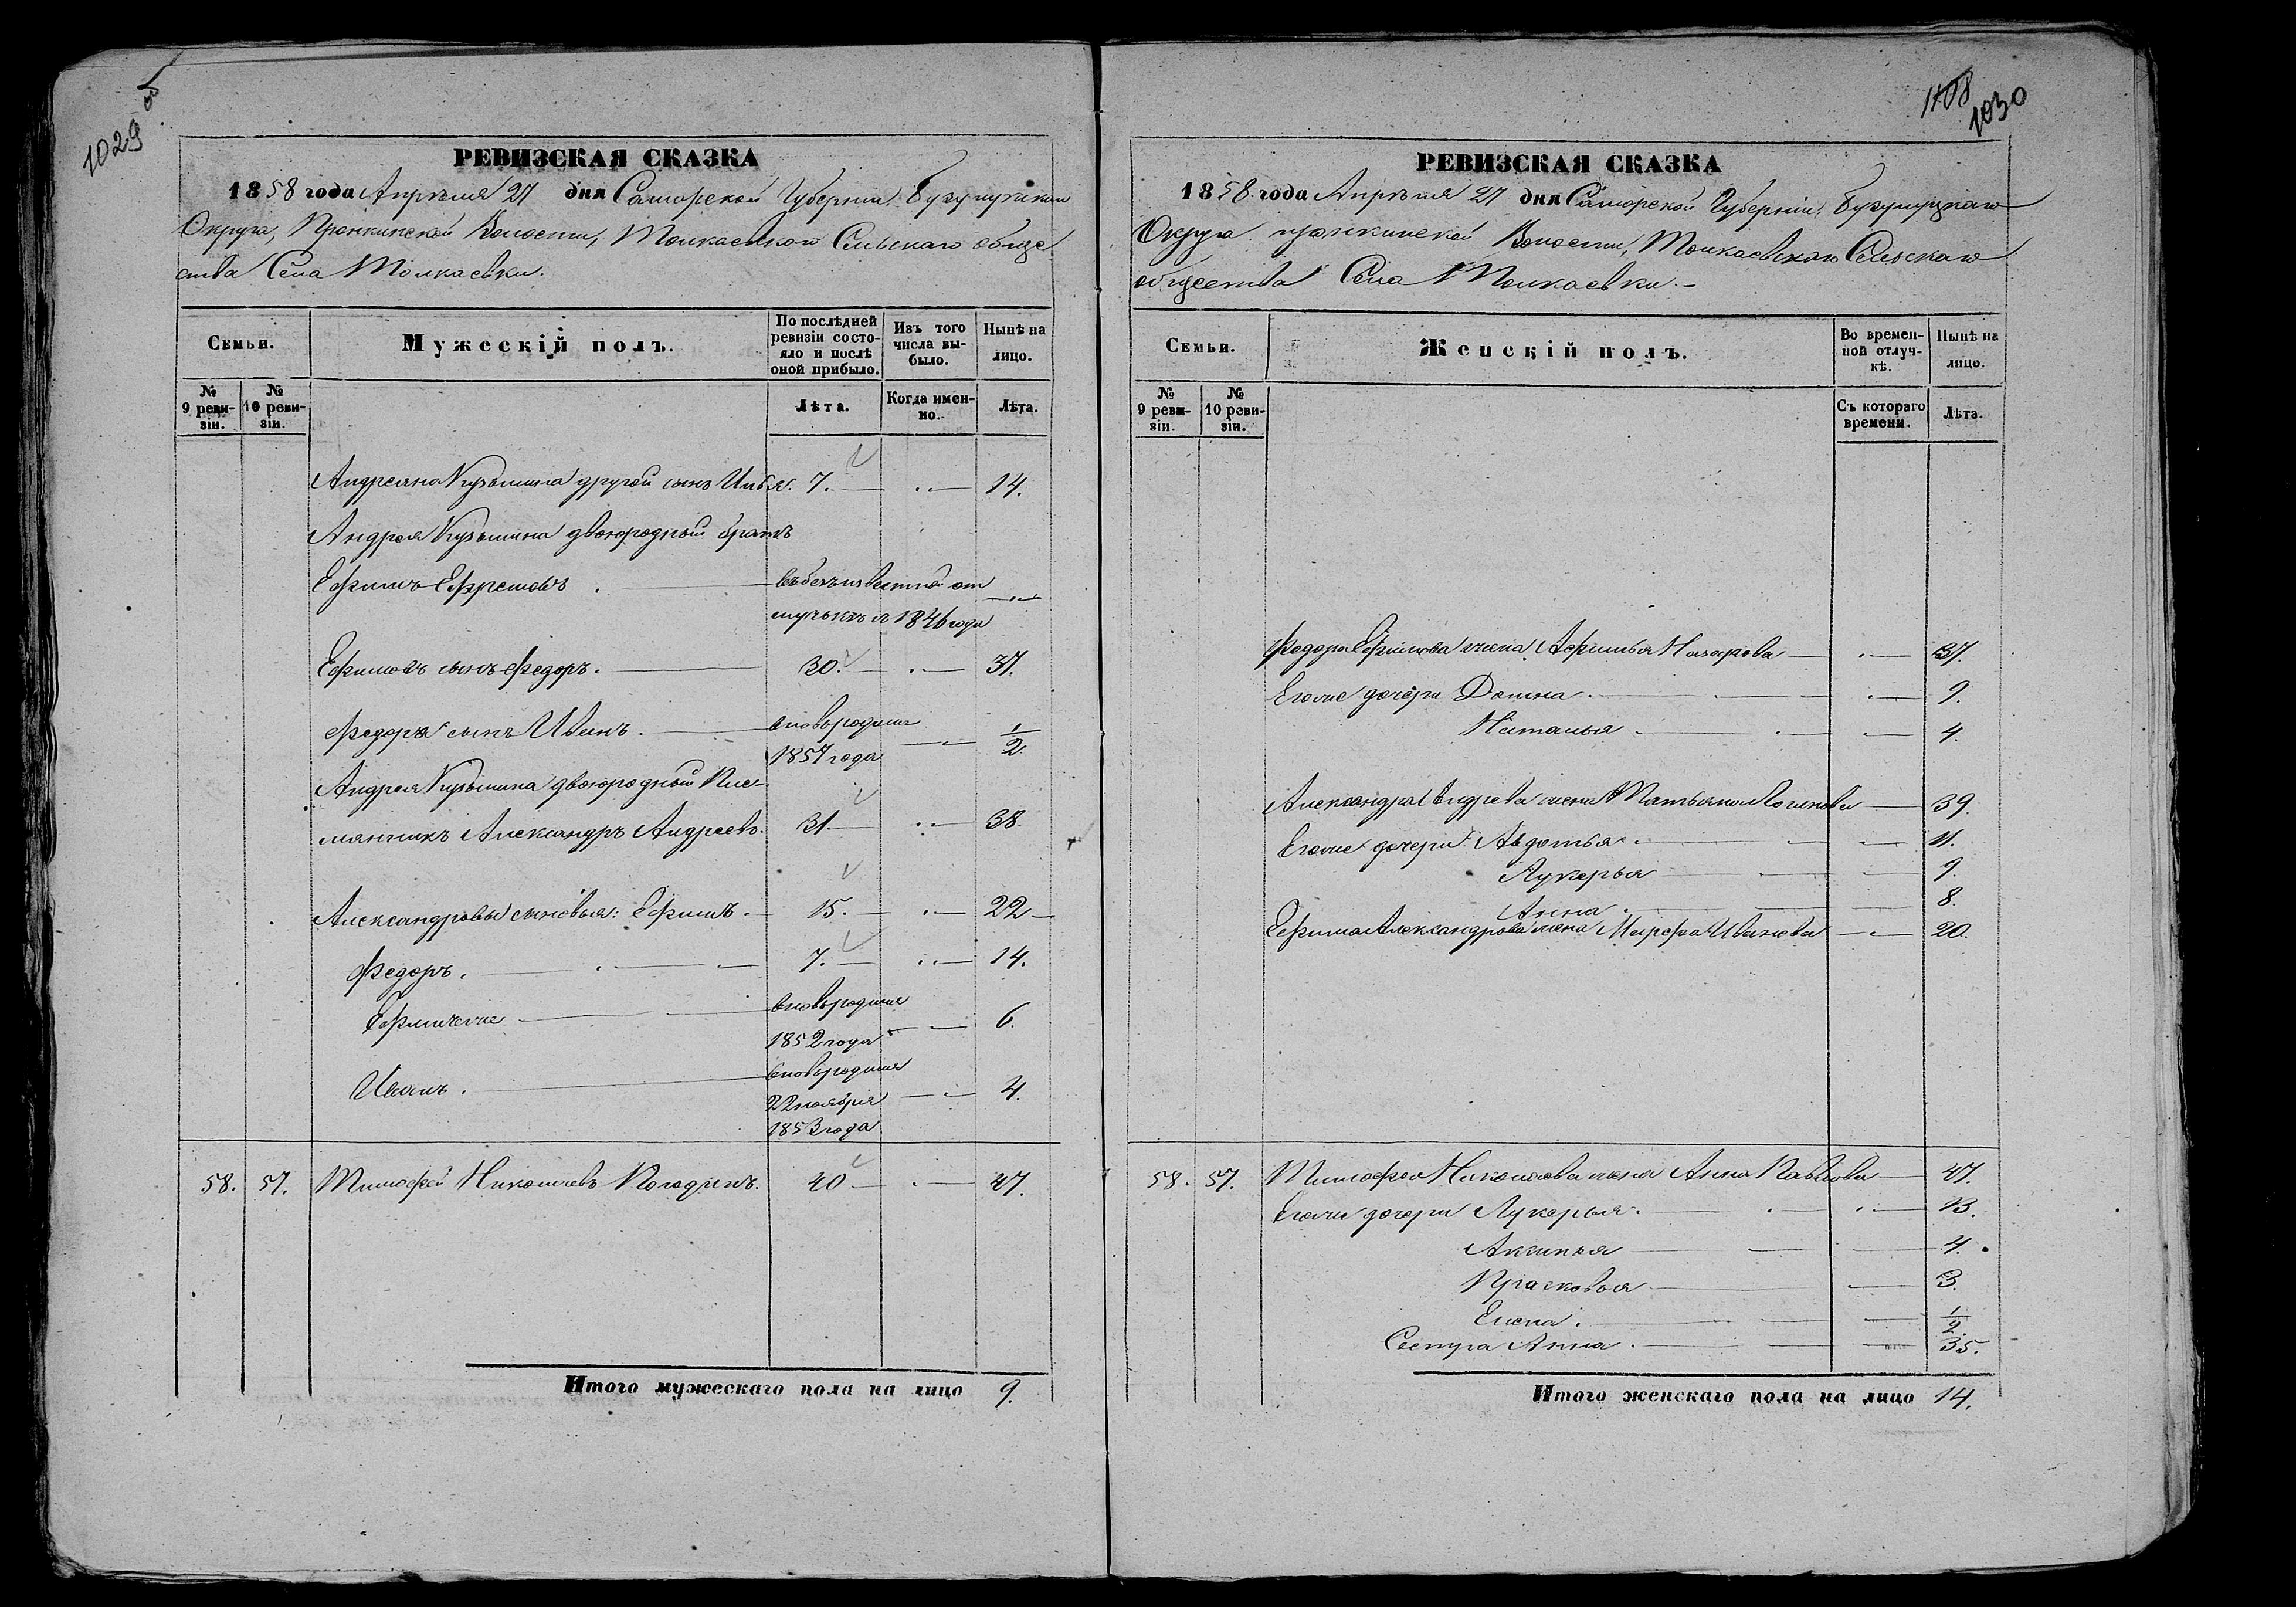 1029 об
РЕВИЗСКАЯ СКАЗКА
1858 года Апрѣля 27 дня Самарской Губерніи Бузулукскаго
Округа, Пронькинской Волости, Толкаевскаго Сельскаго обще
ства Села Толкаевки.
Семьи.
Мужескій полъ.
По послѣдней ревизіи состояло и послѣ оной прибыло.
Изъ того числа выбыло.
Нынѣ на лицо.
№ 9 ревизіи.
№ 10 ревизіи.
Лѣта.
Когда именно.
Лѣта.
Андреяна Кузьмина другой сынъ Илья. 7. 14.
Андрея Кузьмина двоюродный братъ
Ефимъ Ефремовъ . въ безъизвестной от
лучькѣ съ 1846 года
Ефимовъ сынъ Федоръ. 30. 37.
Федора сынъ Иванъ. вновьрожден
1857 года 1/2
Андрея Кузьмина двоюродный Пле-
мянникъ Александръ Андреевъ. 31. 38.
Александровы сыновья: Ефимъ. 15. 22
Федоръ. 7. 14.
Ефимъ же вновьрожден
1852 года 6.
Иванъ. вновьрожден
22 ноября 4.
1853 года
58. 57. Тимофей Николаевъ Погодинъ. 40 47.
Итого мужескаго пола на лицо 9.
1108
1030
РЕВИЗСКАЯ СКАЗКА
1858 года Апрѣля 27 дня Самарской Губерніи, Бузулуцкаго
Округа пронькинской Волости, Толкаевскаго Сельскаго
общества Села Толкаевки.
Семьи.
Женскій полъ.
Во временной отлучкѣ.
Нынѣ на лицо.
№ 9 ревизіи.
№ 10 ревизіи.
Съ котораго времени.
Лѣта.
Федора Ефимова жена Афимья Назарова 37.
Его же дочери Домна. 9.
Наталья 4.
Александра Андреева жена Татьяна Логинова 39.
Его же дочери Авдотья. 11.
Лукерья 9.
Анна. 8.
Ефима Александрова жена Марфа Иванова 20.
58. 57. Тимофея Николаева жена Анна Павлова 47.
Его же дочери Лукерья. 13.
Аксинья 4.
Прасковья 3.
Елена. 1/2
Сестра Анна. 35.
Итого женскаго пола на лицо 14.